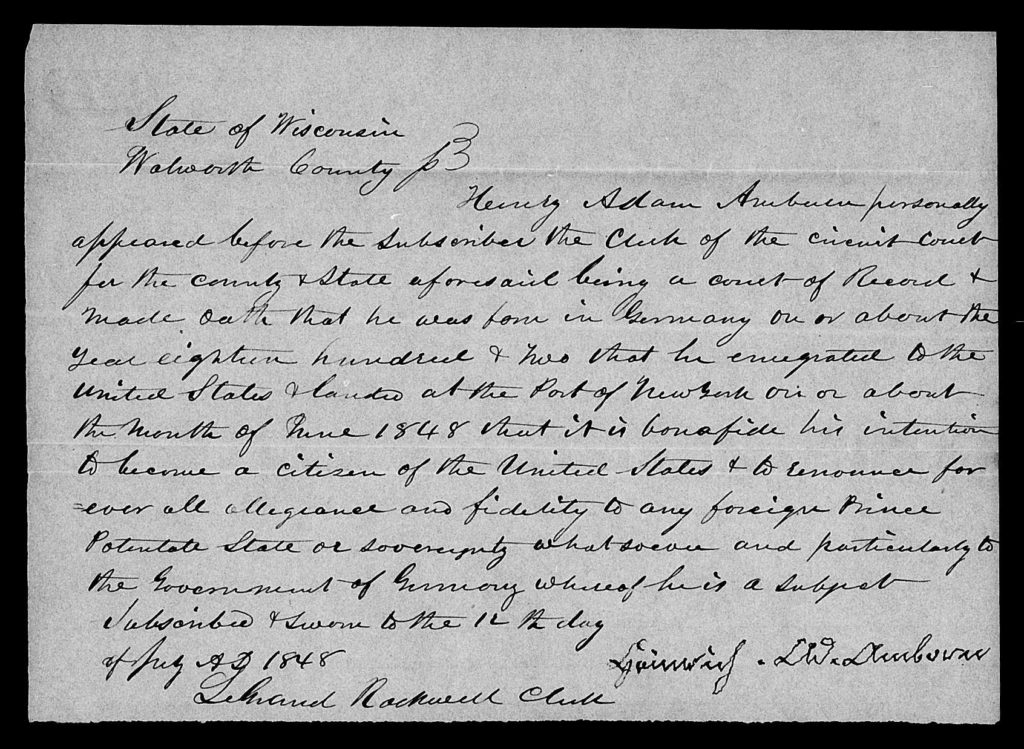 State of Wisconsin
Walworth County ss
Henry Adam Amburn personally
appeared before the subscriber the Clerk of the circuit court
for the county & State aforesaid being a court of Record &
made oath that he was born in Germany on or about the
year eighteen hundred & two that he emegrated to the
United States & landed at the Port of New York on or about
the month of June 1848 that it is bonafide his intention
to become a citizen of the United States & to renounce for
=ever all allegiance and fidelity to any foreign Prince
Potentate State or sovereignty whatsoever and particularly to
the Government of Germany whereof he is a subject
Subscribed & sworn to the 12th day
of July AD 1848
Heinrich . Ad. Amborn
LeGrand Rockwell Clerk